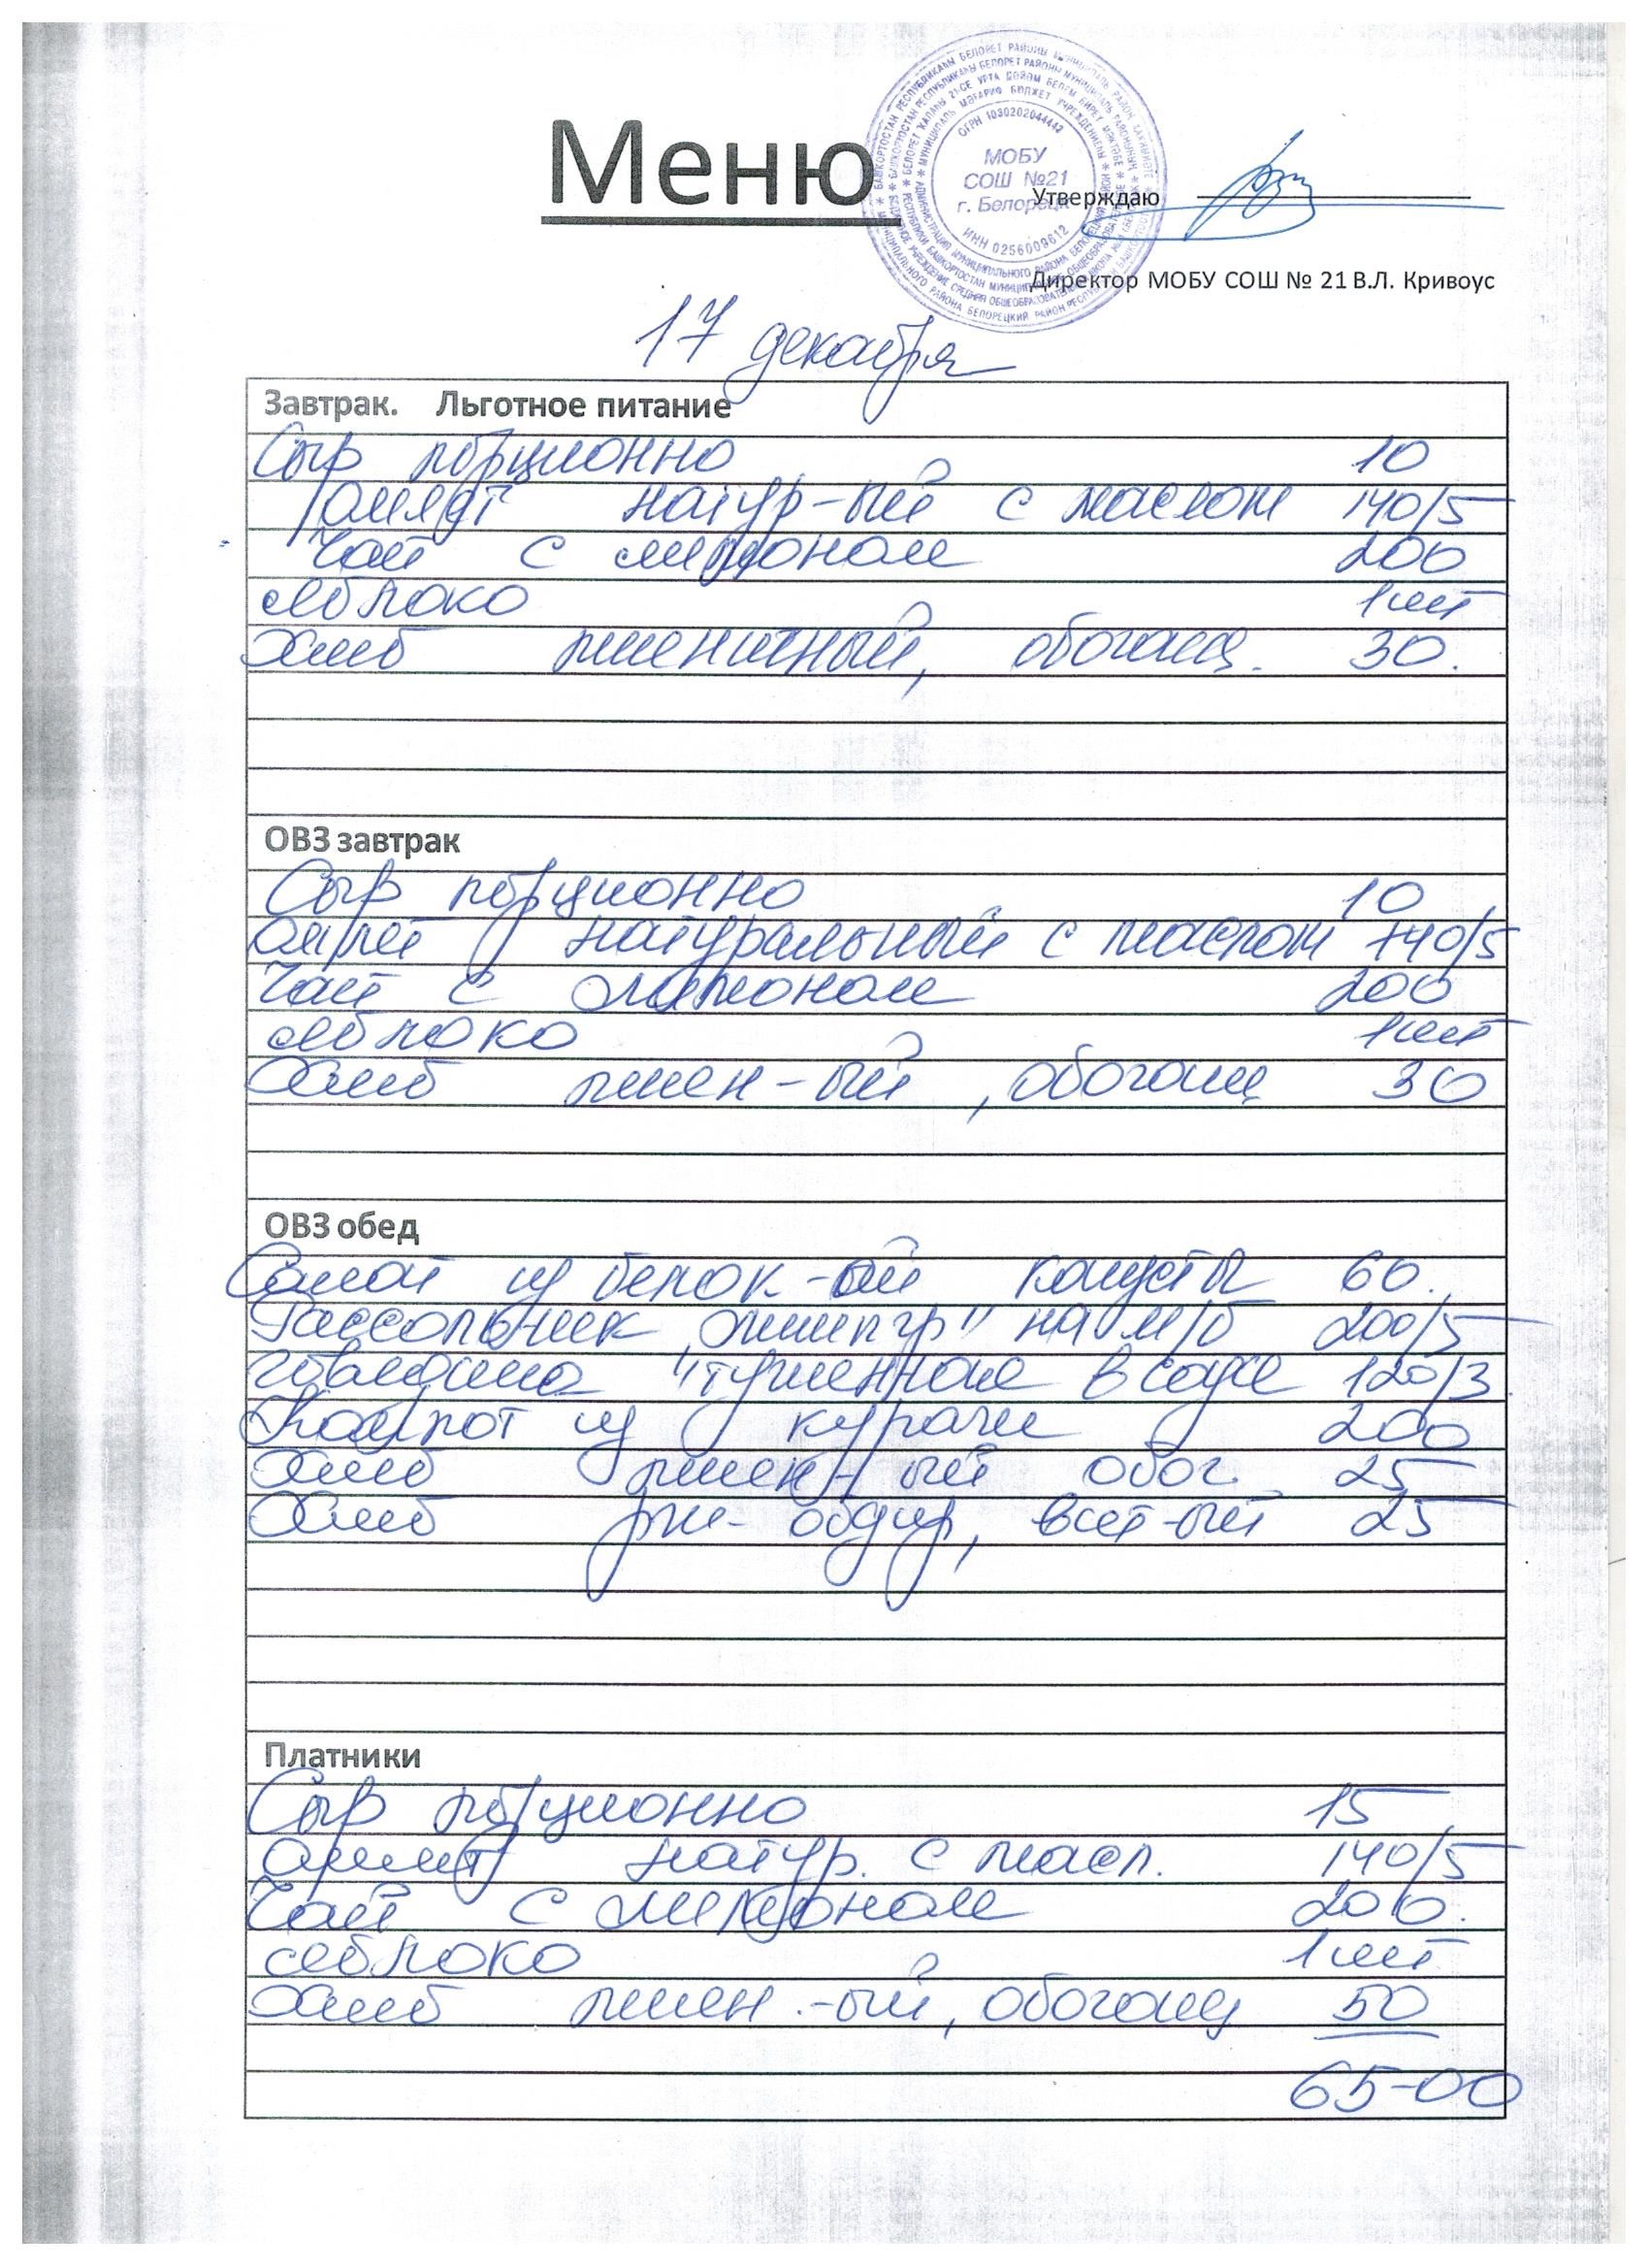 Меню
МОБУ
СОШ №21
г. Белорецк
ОГРН 1030202044442
ИНН 0256009612
Утверждаю
Директор МОБУ СОШ № 21 В.Л. Кривоус
17 декабря
Завтрак. Льготное питание
Сыр порционно 10
Омлет натур-ый с маслом 140/5
Чай с лимоном 200
яблоко 1шт
Хлеб пшеничный, обогащ. 30.
ОВЗ завтрак
Сыр порционно 10
Омлет натуральный с маслом 140/5
Чай с лимоном 200
яблоко 1шт
Хлеб пшен-ый, обогащ 30
ОВЗ обед
Салат из белок-ой капусты 60.
Рассольник "Ленингр" на м/б 200/5
говядина тушенная в соусе 120/3.
Компот из кураги 200
Хлеб пшен-ый обог. 25
Хлеб рж- обдир, 25
Платники
Сыр порционно 15
Омлет натур. с масл. 140/5
Чай с лимоном 200.
яблоко 1шт
Хлеб пшен.-ый, обогащ 50
65-00